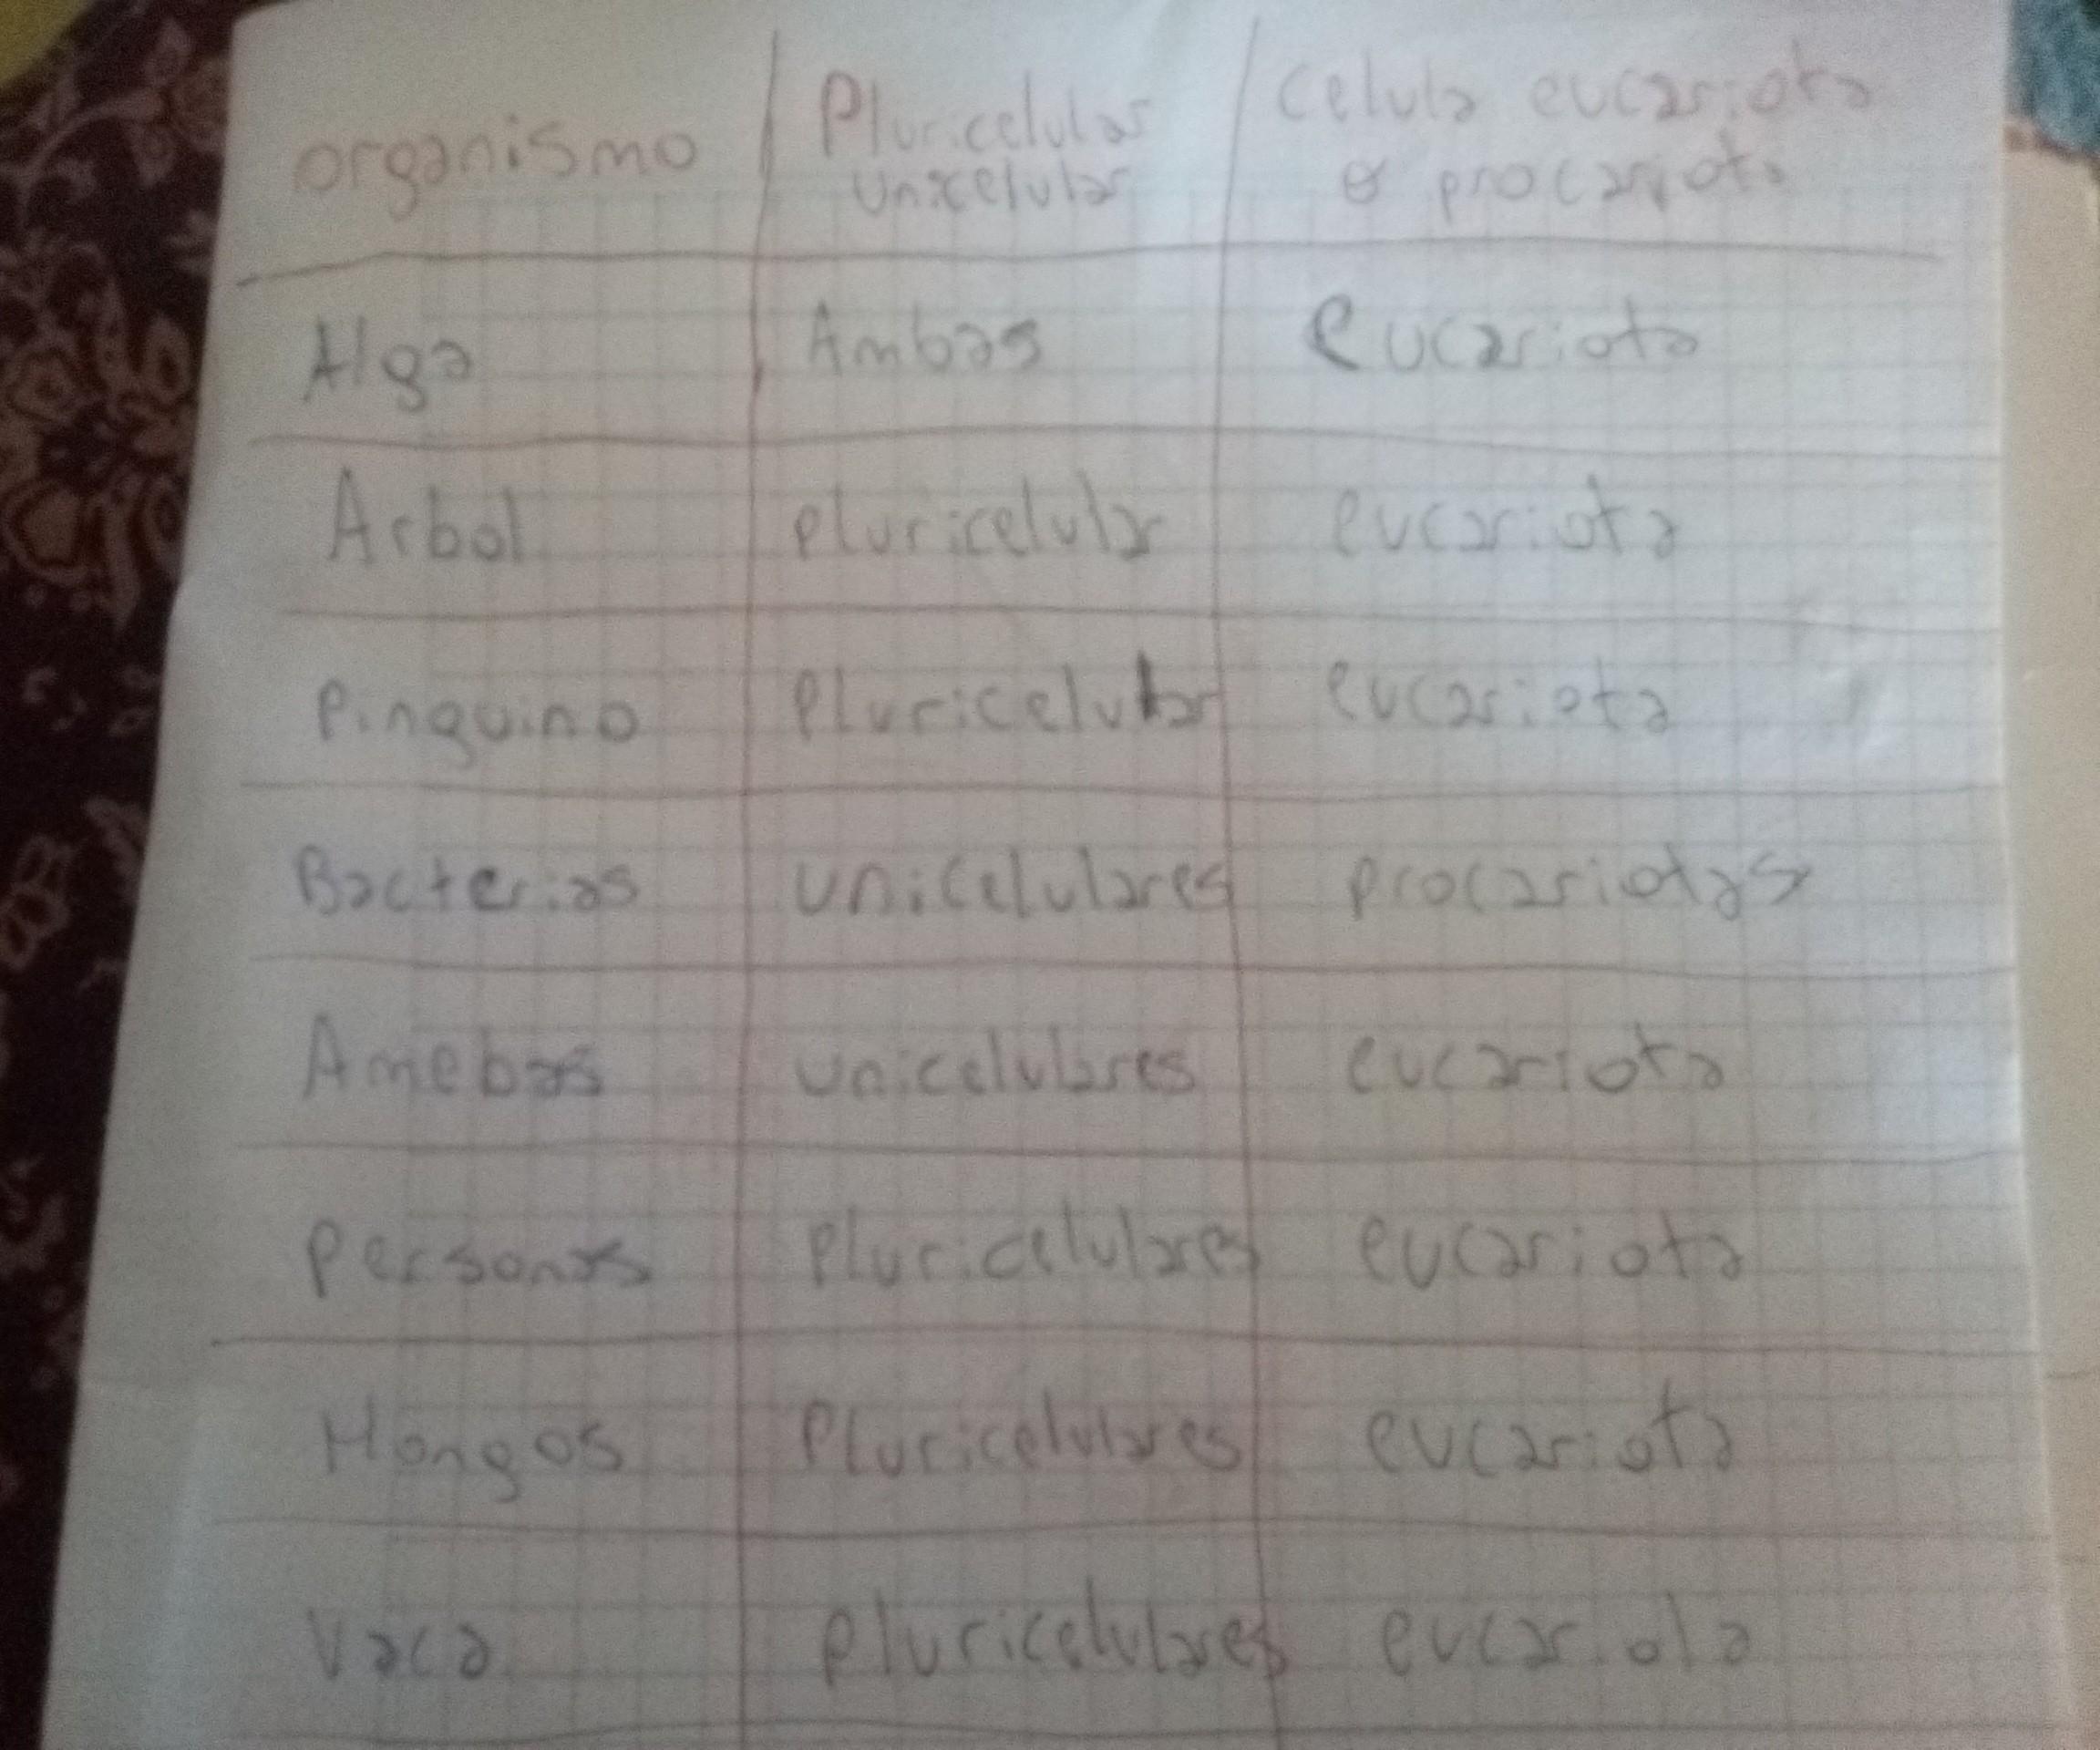 organismo
Pluricelular
unicelular
celula eucariota
o procariota
Alga Ambas eucariota
Arbol pluricelular eucariota
Pinguino pluricelular eucariota
Bacterias unicelulares procariotas
Amebas unicelulares eucariota
personas pluricelulares eucariota
Hongos pluricelulares eucariota
Vaca pluricelulares eucariota